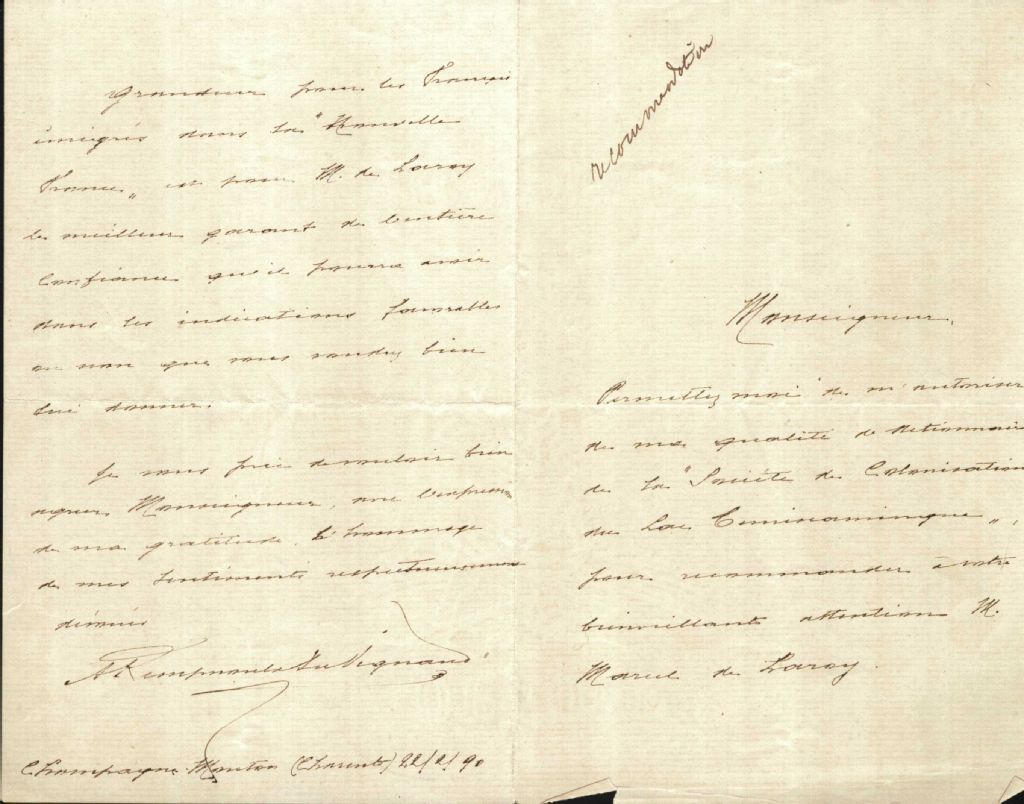 recommendation
Monseigneur,
Permettez moi de m'autoriser
de ma qualité d'Actionnaire
de la "Société de Colonisation
du Lac Temiscamingue",
pour recommander à votre
bienveillante attention M.
Marcel de
Grandeur pour les Français
émigrés dans la "Nouvelle
France" est pour M. de
le meilleur garant de l'entière
confiance qu'il pourra avoir
dans les indications favorables
ou non que vous voudrez bien
lui donner.
Je vous prie de vouloir bien
agréer Monseigneur, avec l'expression
de ma gratitude, l'hommage
de mes sentiments respectueusement
dévoués
du Vignaud
Champagne-Mouton (Charente) 22/2/90